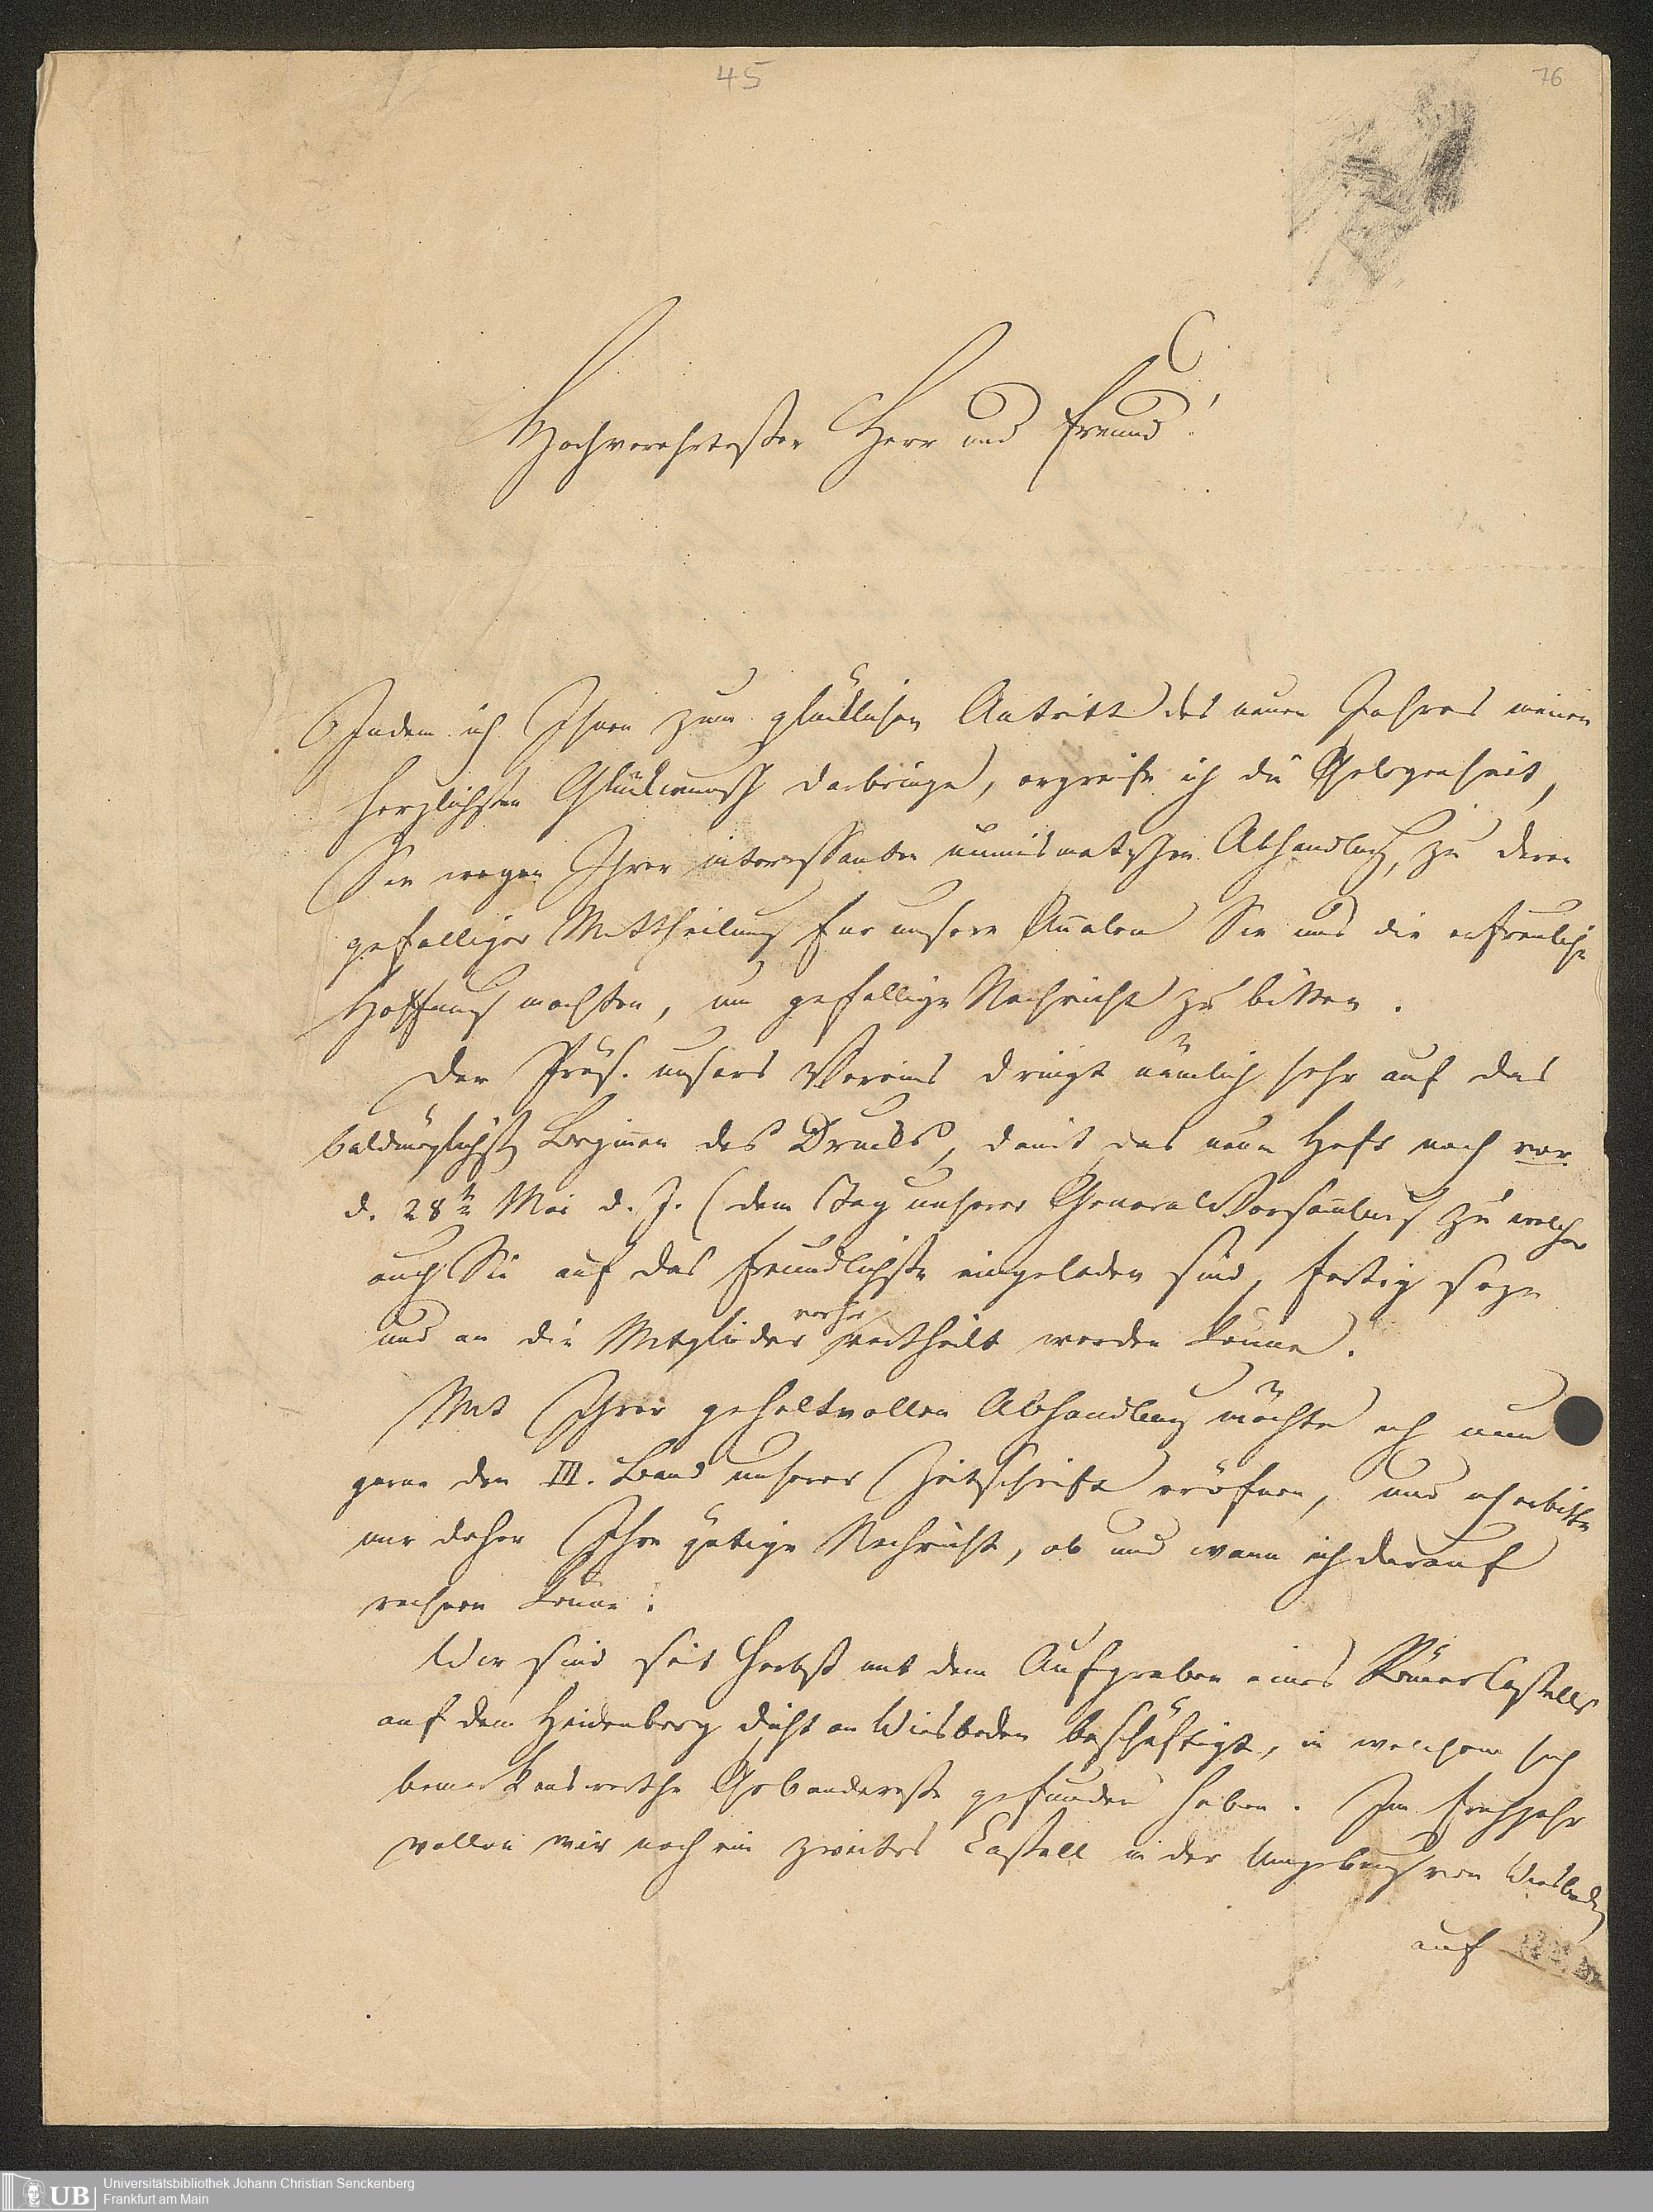 45
76
Hochverehrtester Herr und Freund!
Indem ich Ihnen zum glücklichen Antritt des neuen Jahres meinen
herzlichsten Glückwunsch darbringe, ergreife ich die Gelegenheit,
Sie wegen Ihrer interessanten numismatischen Abhandlung, zu deren
gefälliger Mittheilung für unsere Annalen Sie uns die erfreuliche
Hoffnung machten, um gefällige Nachricht zu bitten.
Der Präs. unsers Vereins dringt nämlich sehr auf das
baldmöglichste Beginnen des Drucks, damit das neue Heft noch vor
d. 28tn Mai d. J. (dem Tag unserer Generalversammlung zu welcher
auch Sie auf das freundlichste eingeladen sind, fertig seye
und an die Mitglieder vorher vertheilt werden könne.
Mit Ihrer gehaltvollen Abhandlung möchte ich nun
gerne den III. Band unserer Zeitschrift eröfnen, und ich erbitte
mir daher Ihre gütige Nachricht, ob und wann ich darauf
rechnen könne.
Wir sind seit Herbst mit dem Aufgraben eines Römercastells
auf dem Heidenberg dicht an Wiesbaden beschäftigt, in welchem sich
bemerkenswerthe Gebäudereste gefunden haben. Im Frühjahr
wollen wir noch ein zweites Castell in der Umgebung von Wiesbaden
auf
UB
Universitätsbibliothek Johann Christian Senckenberg
Frankfurt am Main